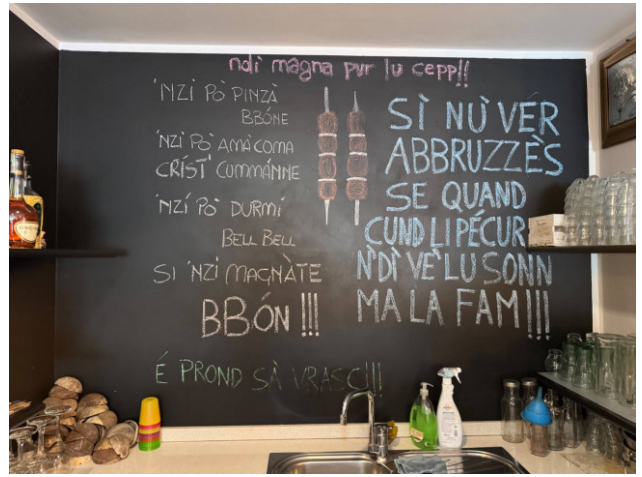 ndì magna pur lu cepp!!
'NZÌ PÒ PINZÀ
BBÓNE
'NZÌ PÒ AMÀ COMA
CRÍST' CUMMÁNNE
'NZÍ PÒ DURMÍ
BELL BELL
SI 'NZI MAGNÀTE
BBÓN !!!
É PROND SÀ VRASC!!!
SÌ NÙ VÉR
ABBRUZZÈS
SE QUAND
CUND LI PÉCUR
N'DÌ VÈ LU SONN
MA LA FAM!!!